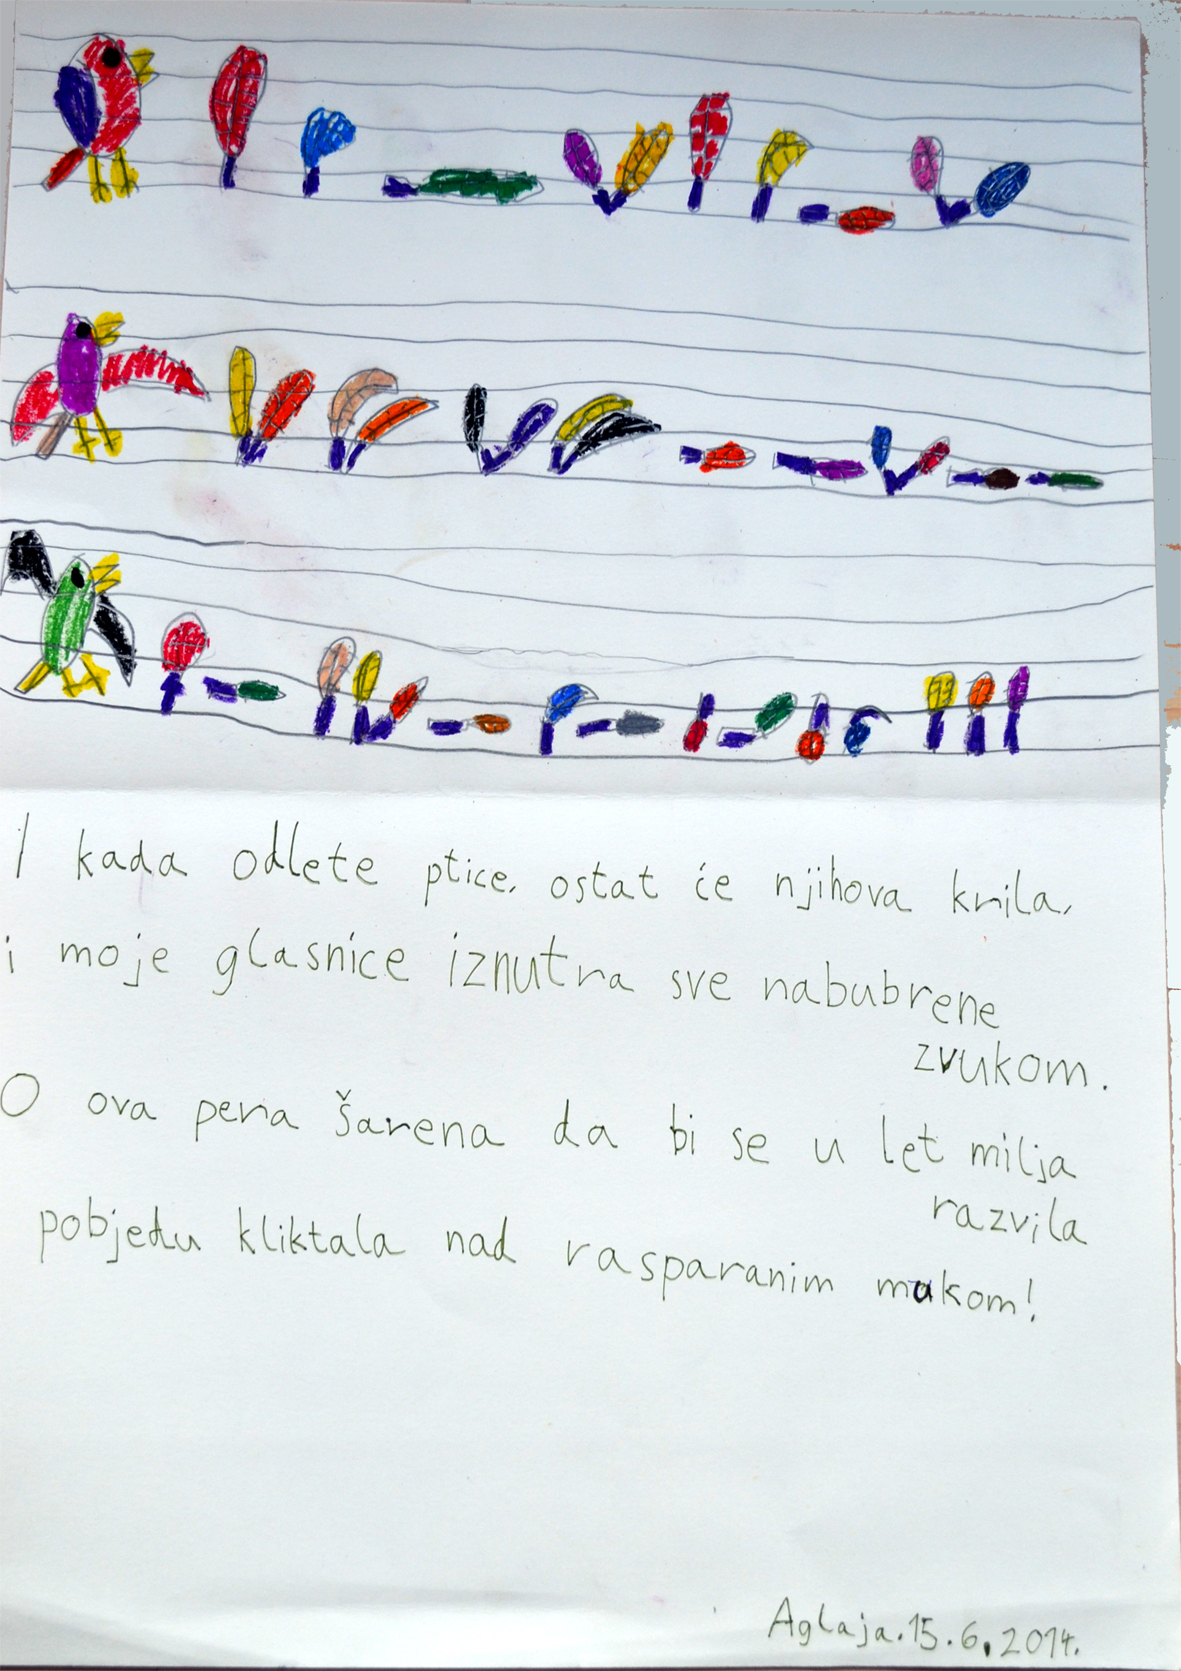 I kada odlete ptice, ostat će njihova krila,
i moje glasnice iznutra sve nabubrene
zvukom.
O ova pera šarena da bi se u let milja
razvila
pobjedu kliktala nad rasparanim mukom!
Aglaja. 15. 6. 2014.